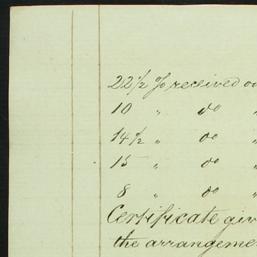 22½ % received o
10 " do "
14½ " do "
15 " do "
8 " do "
Certificate giv
the arrangeme